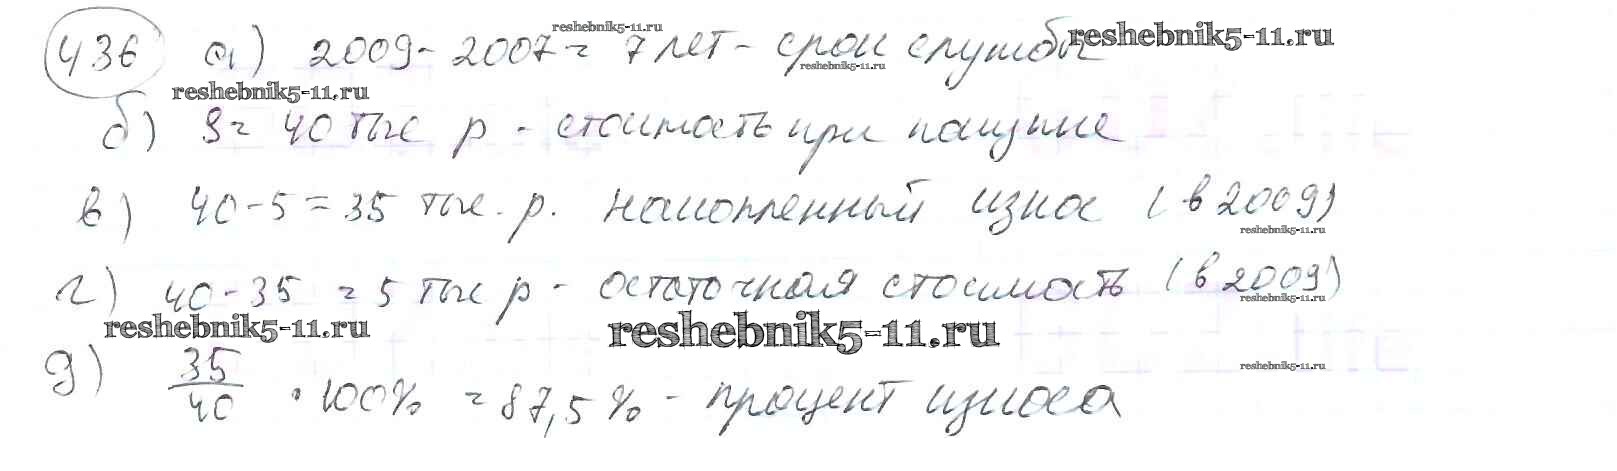 reshebnik5-11.ru
436 а) 2009 - 2007 = 7 лет - срок службы
reshebnik5-11.ru
reshebnik5-11.ru
reshebnik5-11.ru
б) S = 40 тыс р - стоимость при покупке
в) 40 - 5 = 35 тыс. р. накопленный износ (в 2009)
reshebnik5-11.ru
г) 40 - 35 = 5 тыс р - остаточная стоимость (в 2009)
reshebnik5-11.ru
reshebnik5-11.ru
reshebnik5-11.ru
д) 35/40 · 100% = 87,5% - процент износа
reshebnik5-11.ru